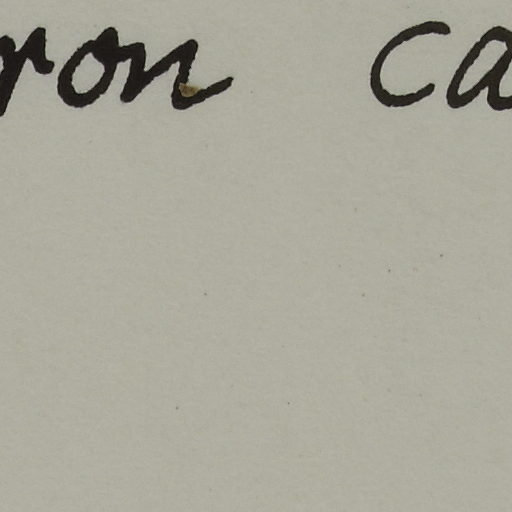 ron ca